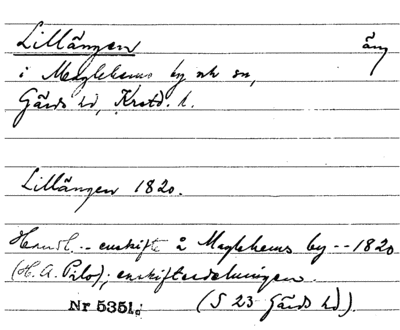 Lillängen äng
i Maglehems by och sn,
Gärds hd, Krstd. l.
Lillängen 1820.
Handl. -- enskifte å Maglehems by -- 1820
(H. A. Pilo); enskiftesdelningen.
Nr 5351. (S 23 Gärds hd).